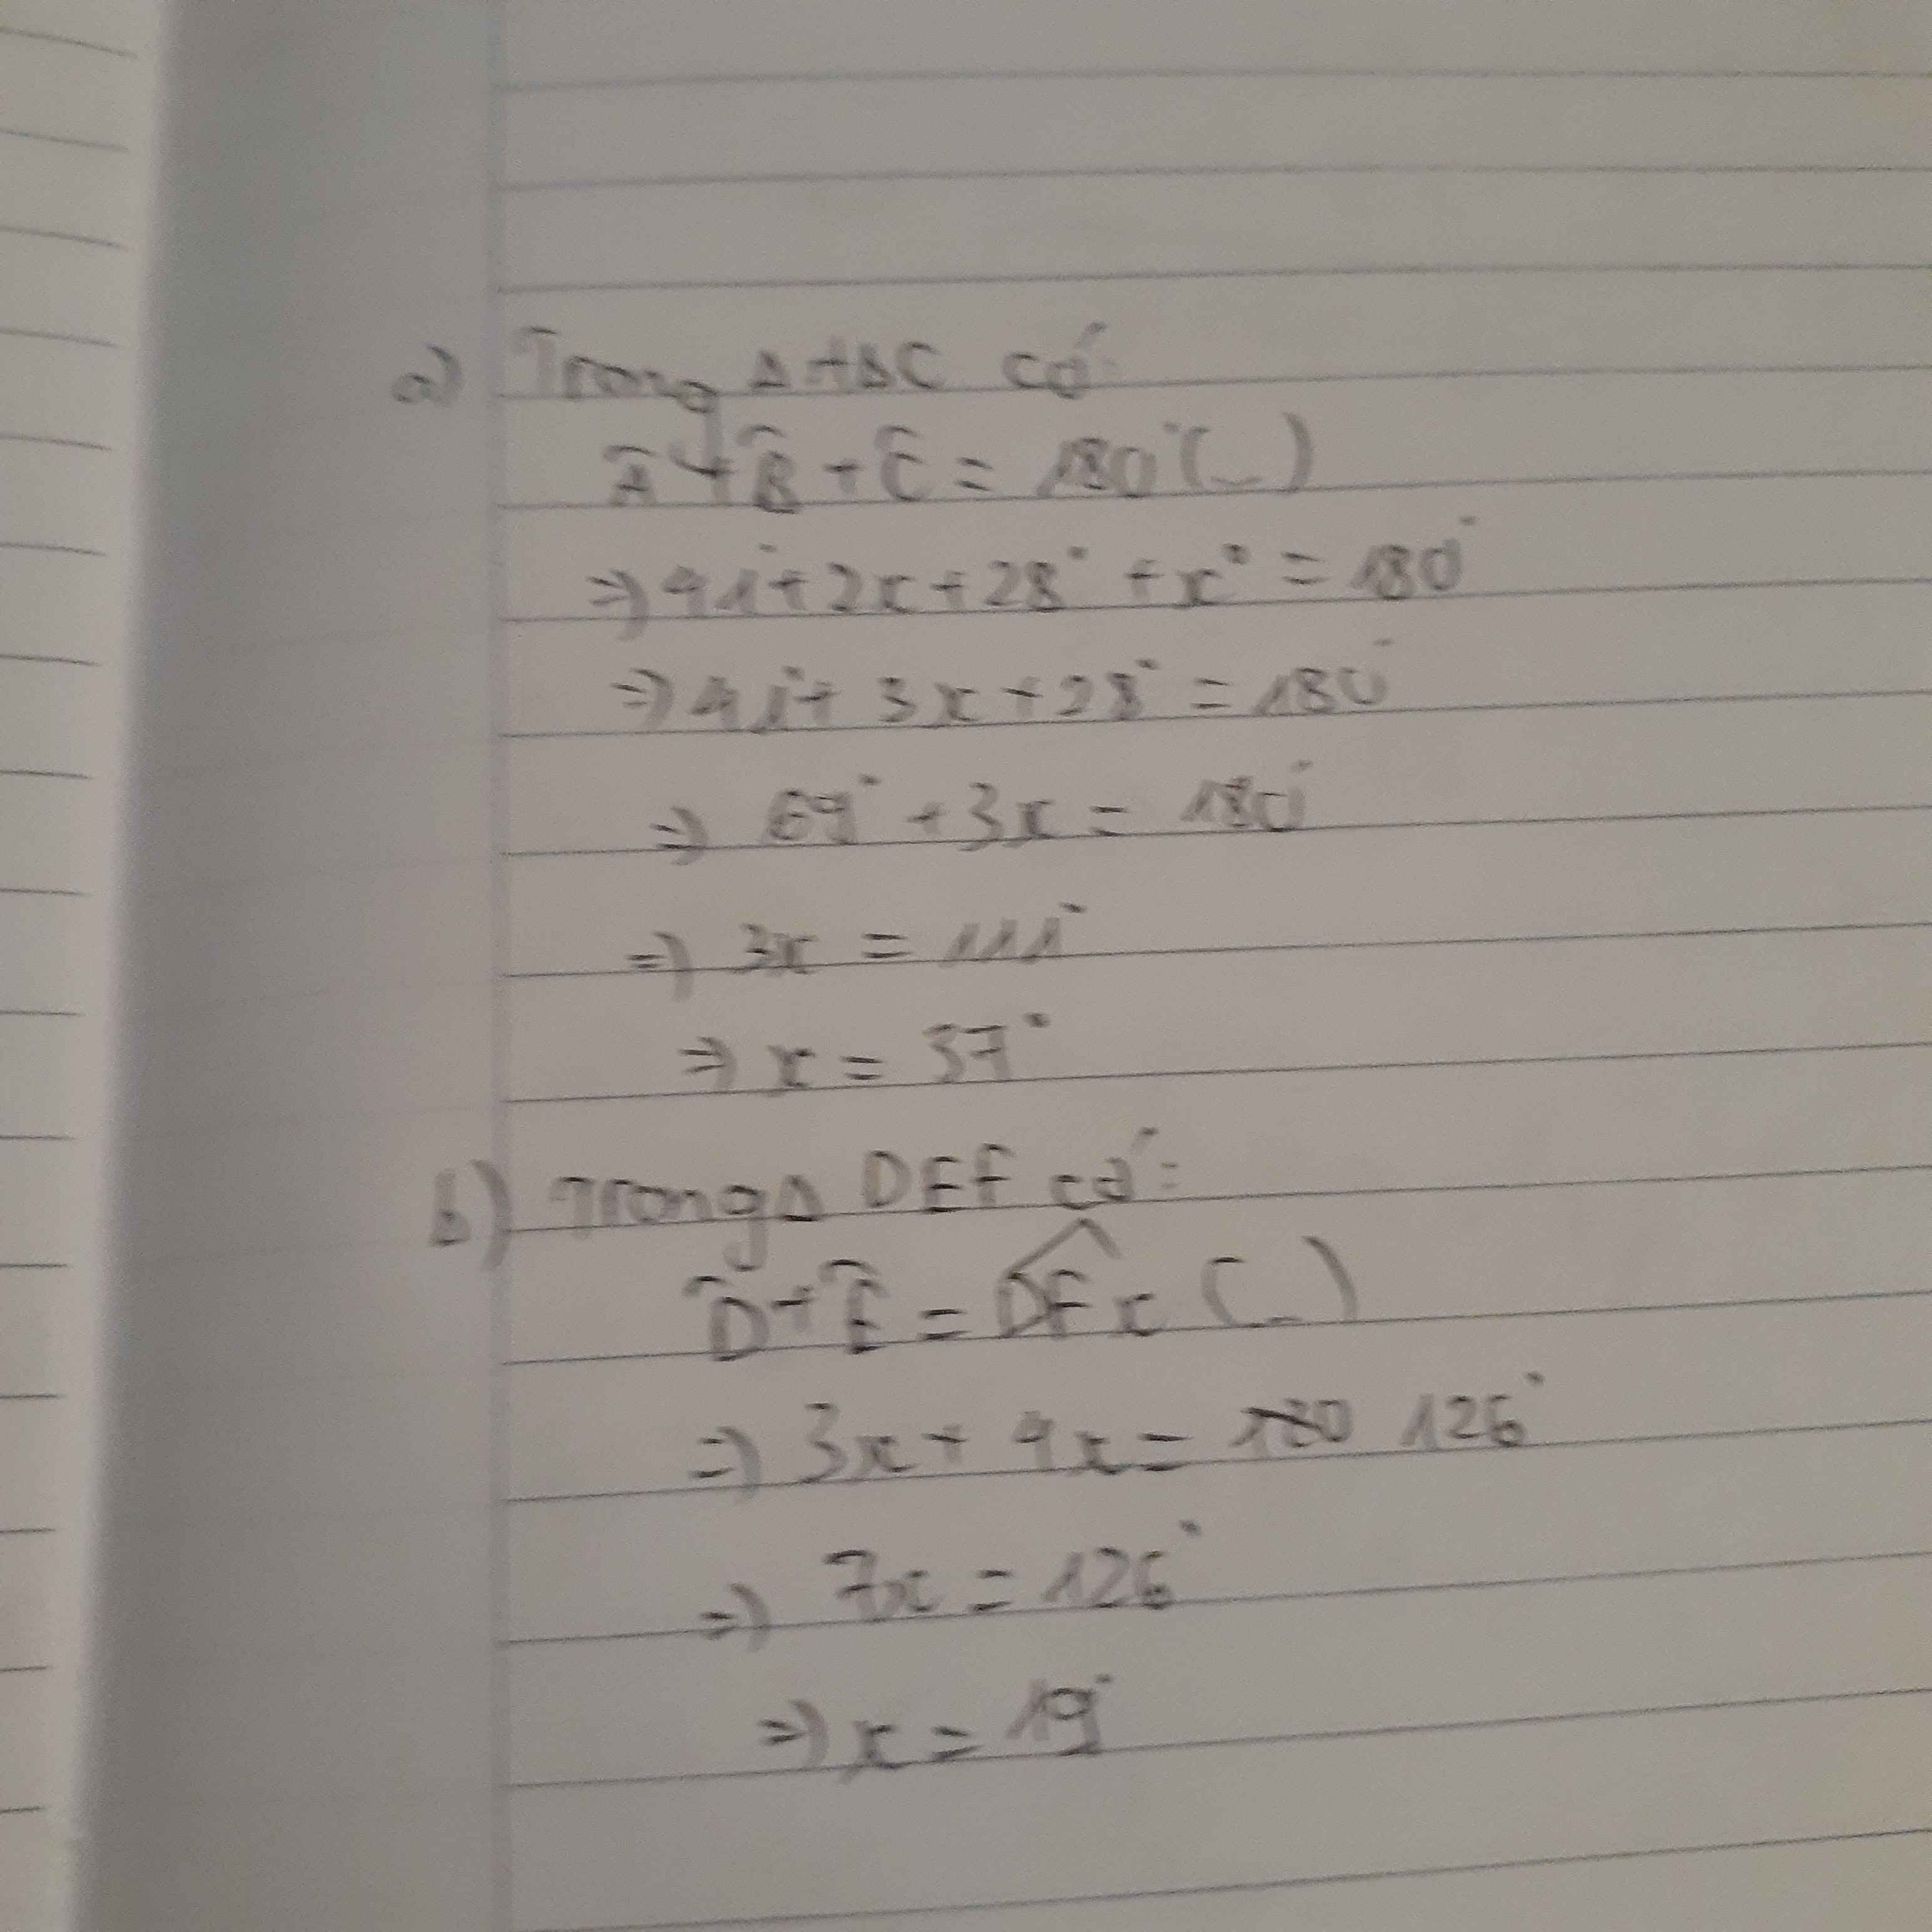 a) Trong Δ ABC có
Â + B̂ + Ĉ = 180° (_)
=> 41° + 2x + 28° + x° = 180°
=> 41° + 3x + 28° = 180°
=> 69° + 3x = 180°
=> 3x = 111°
=> x = 37°
b) Trong Δ DEF có:
D̂ + Ê = DFx (_)
=> 3x + 4x = 180 126°
=> 7x = 126°
=> x = 19°